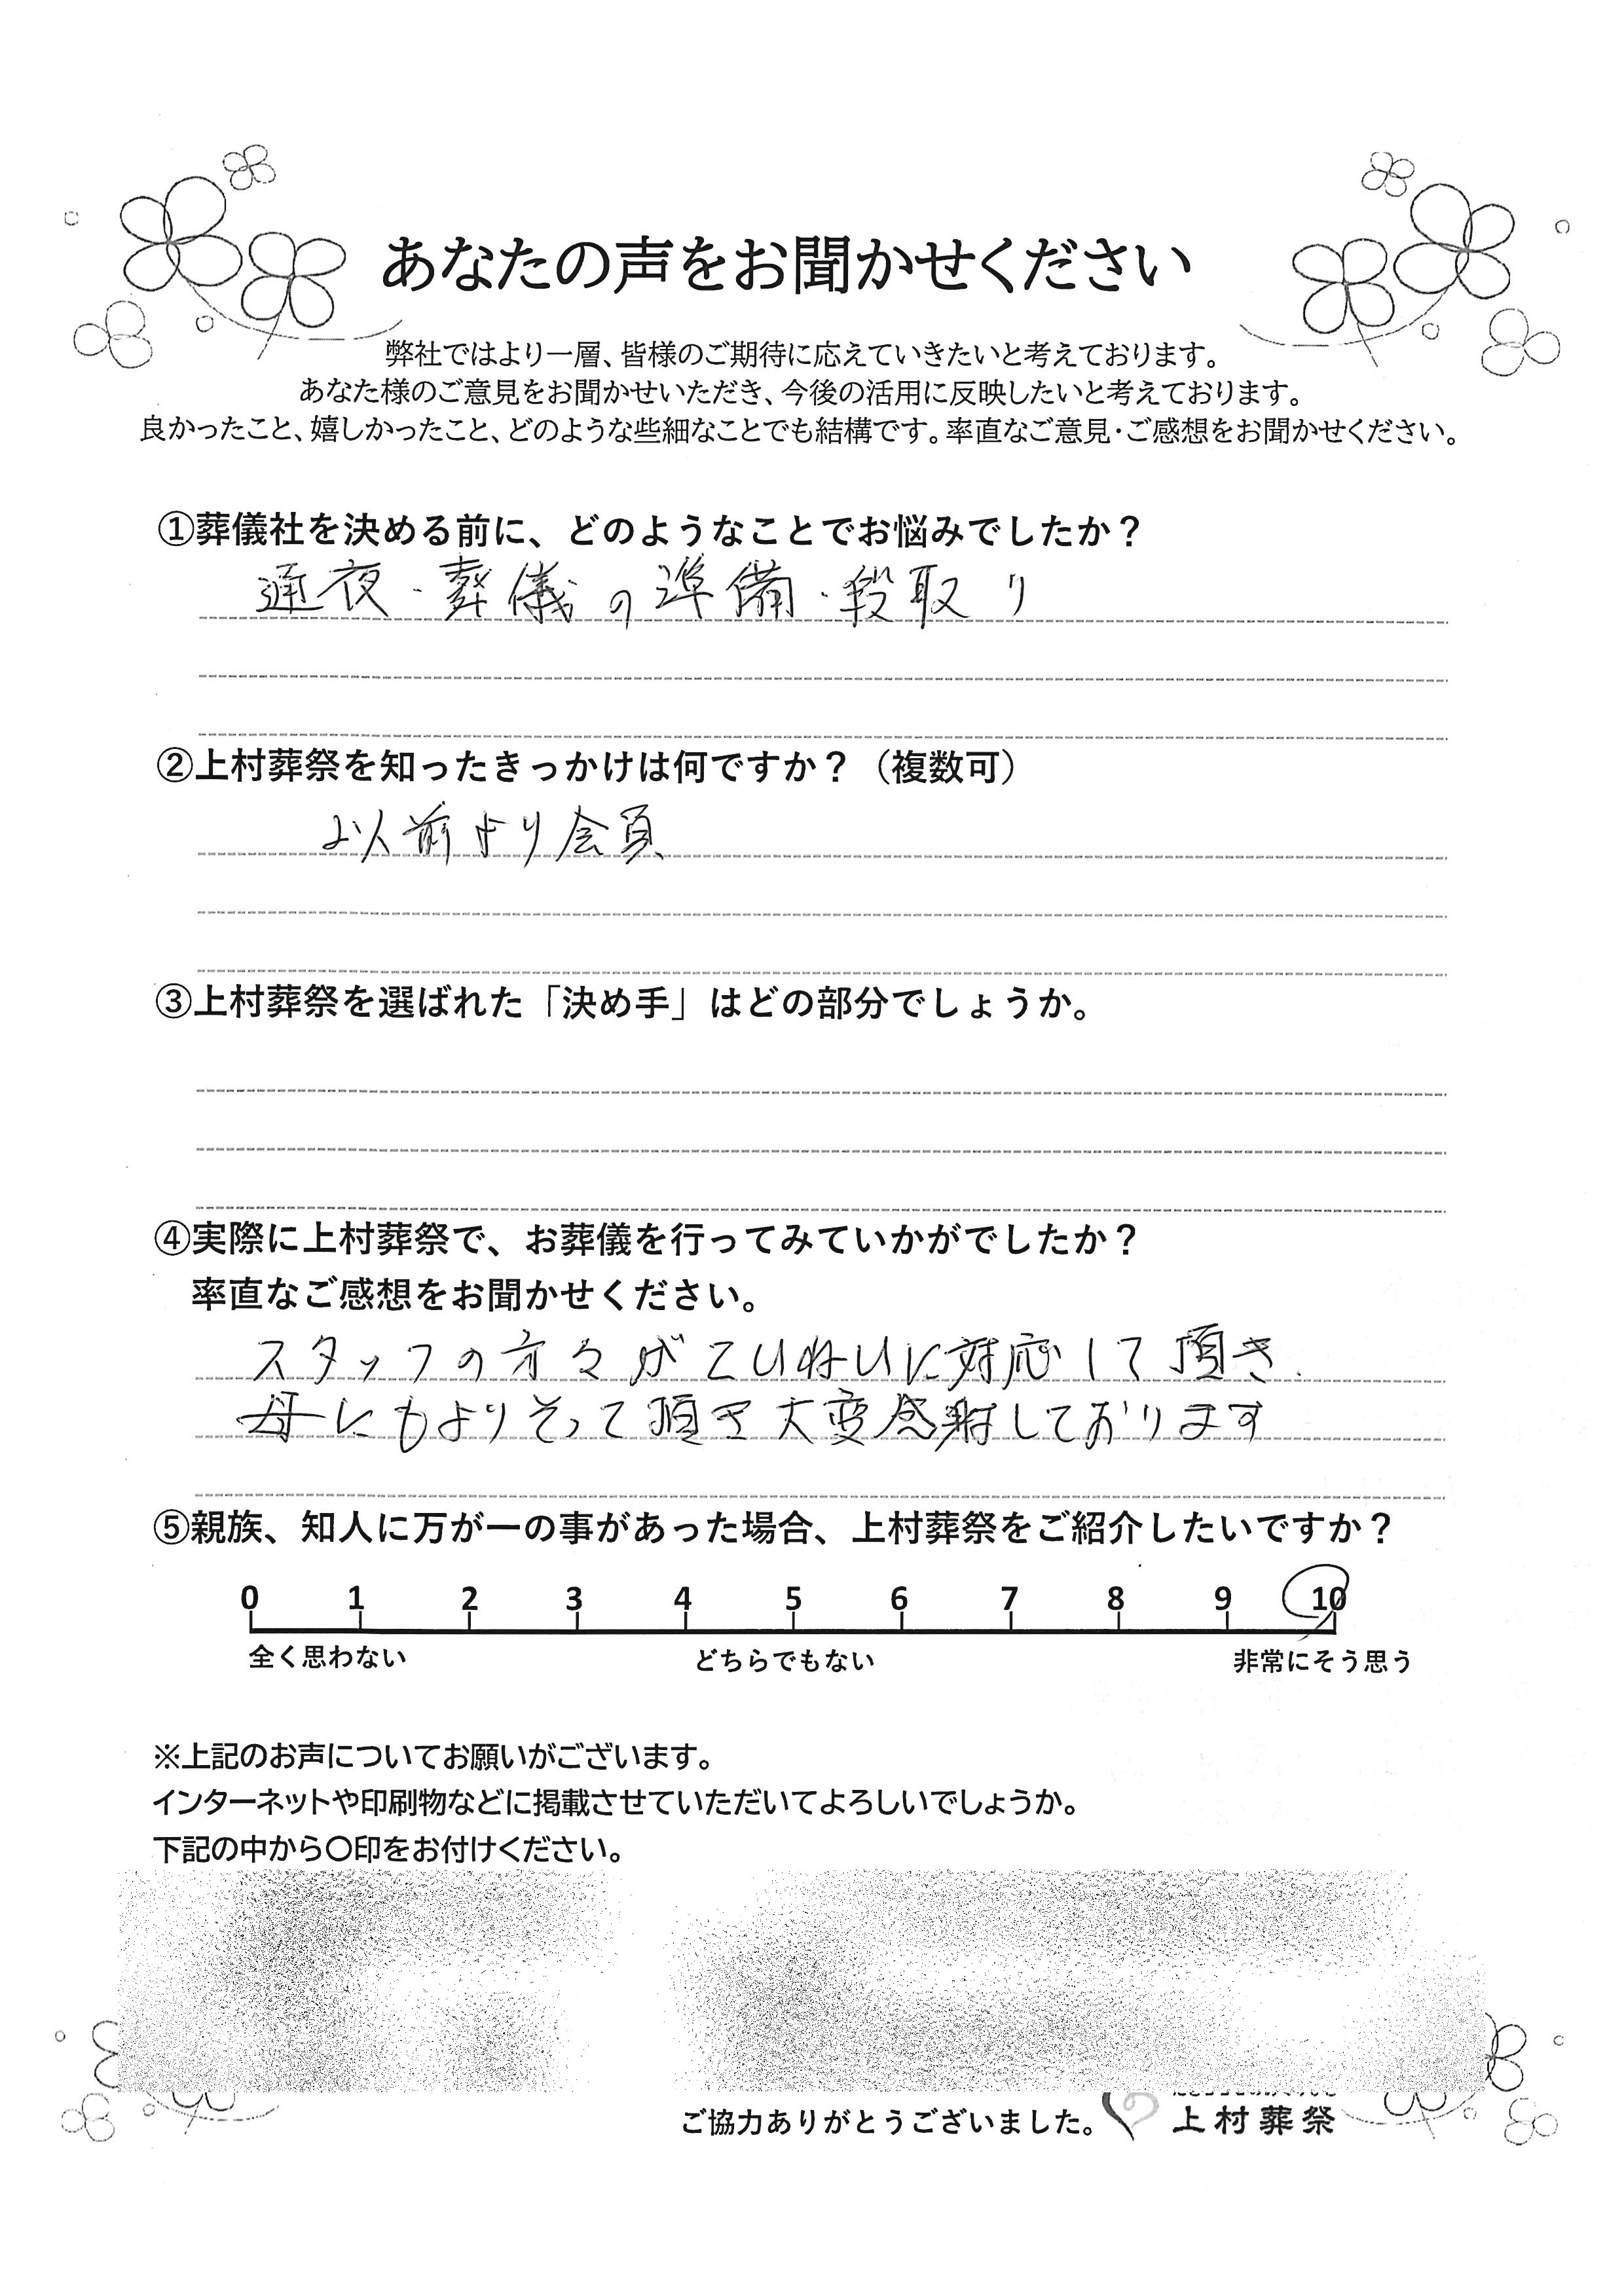 あなたの声をお聞かせください
弊社ではより一層、皆様のご期待に応えていきたいと考えております。
あなた様のご意見をお聞かせいただき、今後の活用に反映したいと考えております。
良かったこと、嬉しかったこと、どのような些細なことでも結構です。率直なご意見・ご感想をお聞かせください。
①葬儀社を決める前に、どのようなことでお悩みでしたか？
通夜・葬儀の準備・段取り
②上村葬祭を知ったきっかけは何ですか？（複数可）
以前より会員
③上村葬祭を選ばれた「決め手」はどの部分でしょうか。
④実際に上村葬祭で、お葬儀を行ってみていかがでしたか？
率直なご感想をお聞かせください。
スタッフの方々がていねいに対応して頂き、
母にもよりそって頂き大変感謝しております
⑤親族、知人に万が一の事があった場合、上村葬祭をご紹介したいですか？
0 1 2 3 4 5 6 7 8 9 10
全く思わない どちらでもない 非常にそう思う
※上記のお声についてお願いがございます。
インターネットや印刷物などに掲載させていただいてよろしいでしょうか。
下記の中から〇印をお付けください。
ご協力ありがとうございました。 上村葬祭